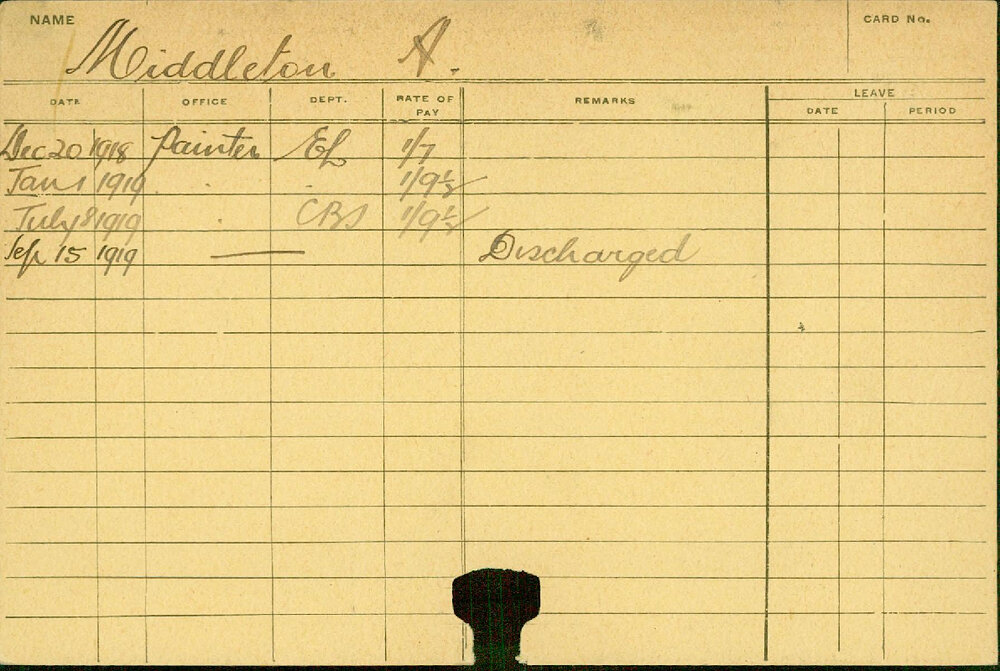 NAME Middleton A. CARD No.
DATE OFFICE DEPT. RATE OF PAY REMARKS LEAVE
DATE PERIOD
Dec 20 1918 Painter EL 1/7
Jan 1 1919 . . 1/9½
July 8 1919 . CBS 1/9½
Sep 15 1919 — Discharged